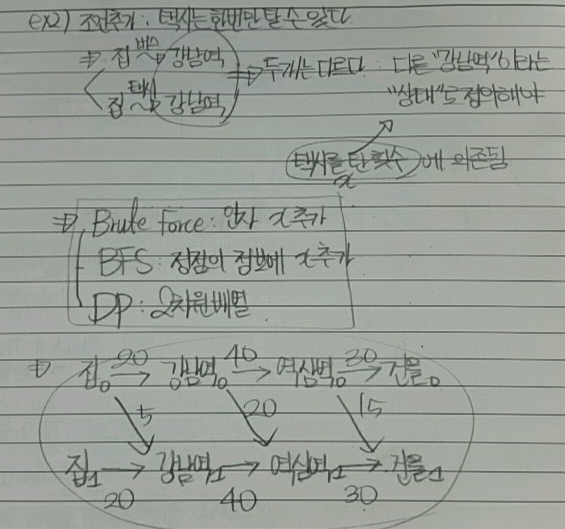 ex2) 조건추가 : 택시는 한번만 탈 수 있다.
⇒ 집 버스→ 강남역
집 택시→ 강남역
⇒ 두개는 다르다. 다른 "강남역"이라는
"상태"로 정의해야
택시를 탄 횟수 에 의존됨
x
⇒ Brute Force : 인자 x 추가
BFS : 정점의 정보에 x 추가
DP : 2차원배열
⇒ 집0 20→ 강남역0 40→ 역삼역0 30→ 건물0
5 20 15
집1 → 강남역1 → 역삼역1 → 건물1
20 40 30